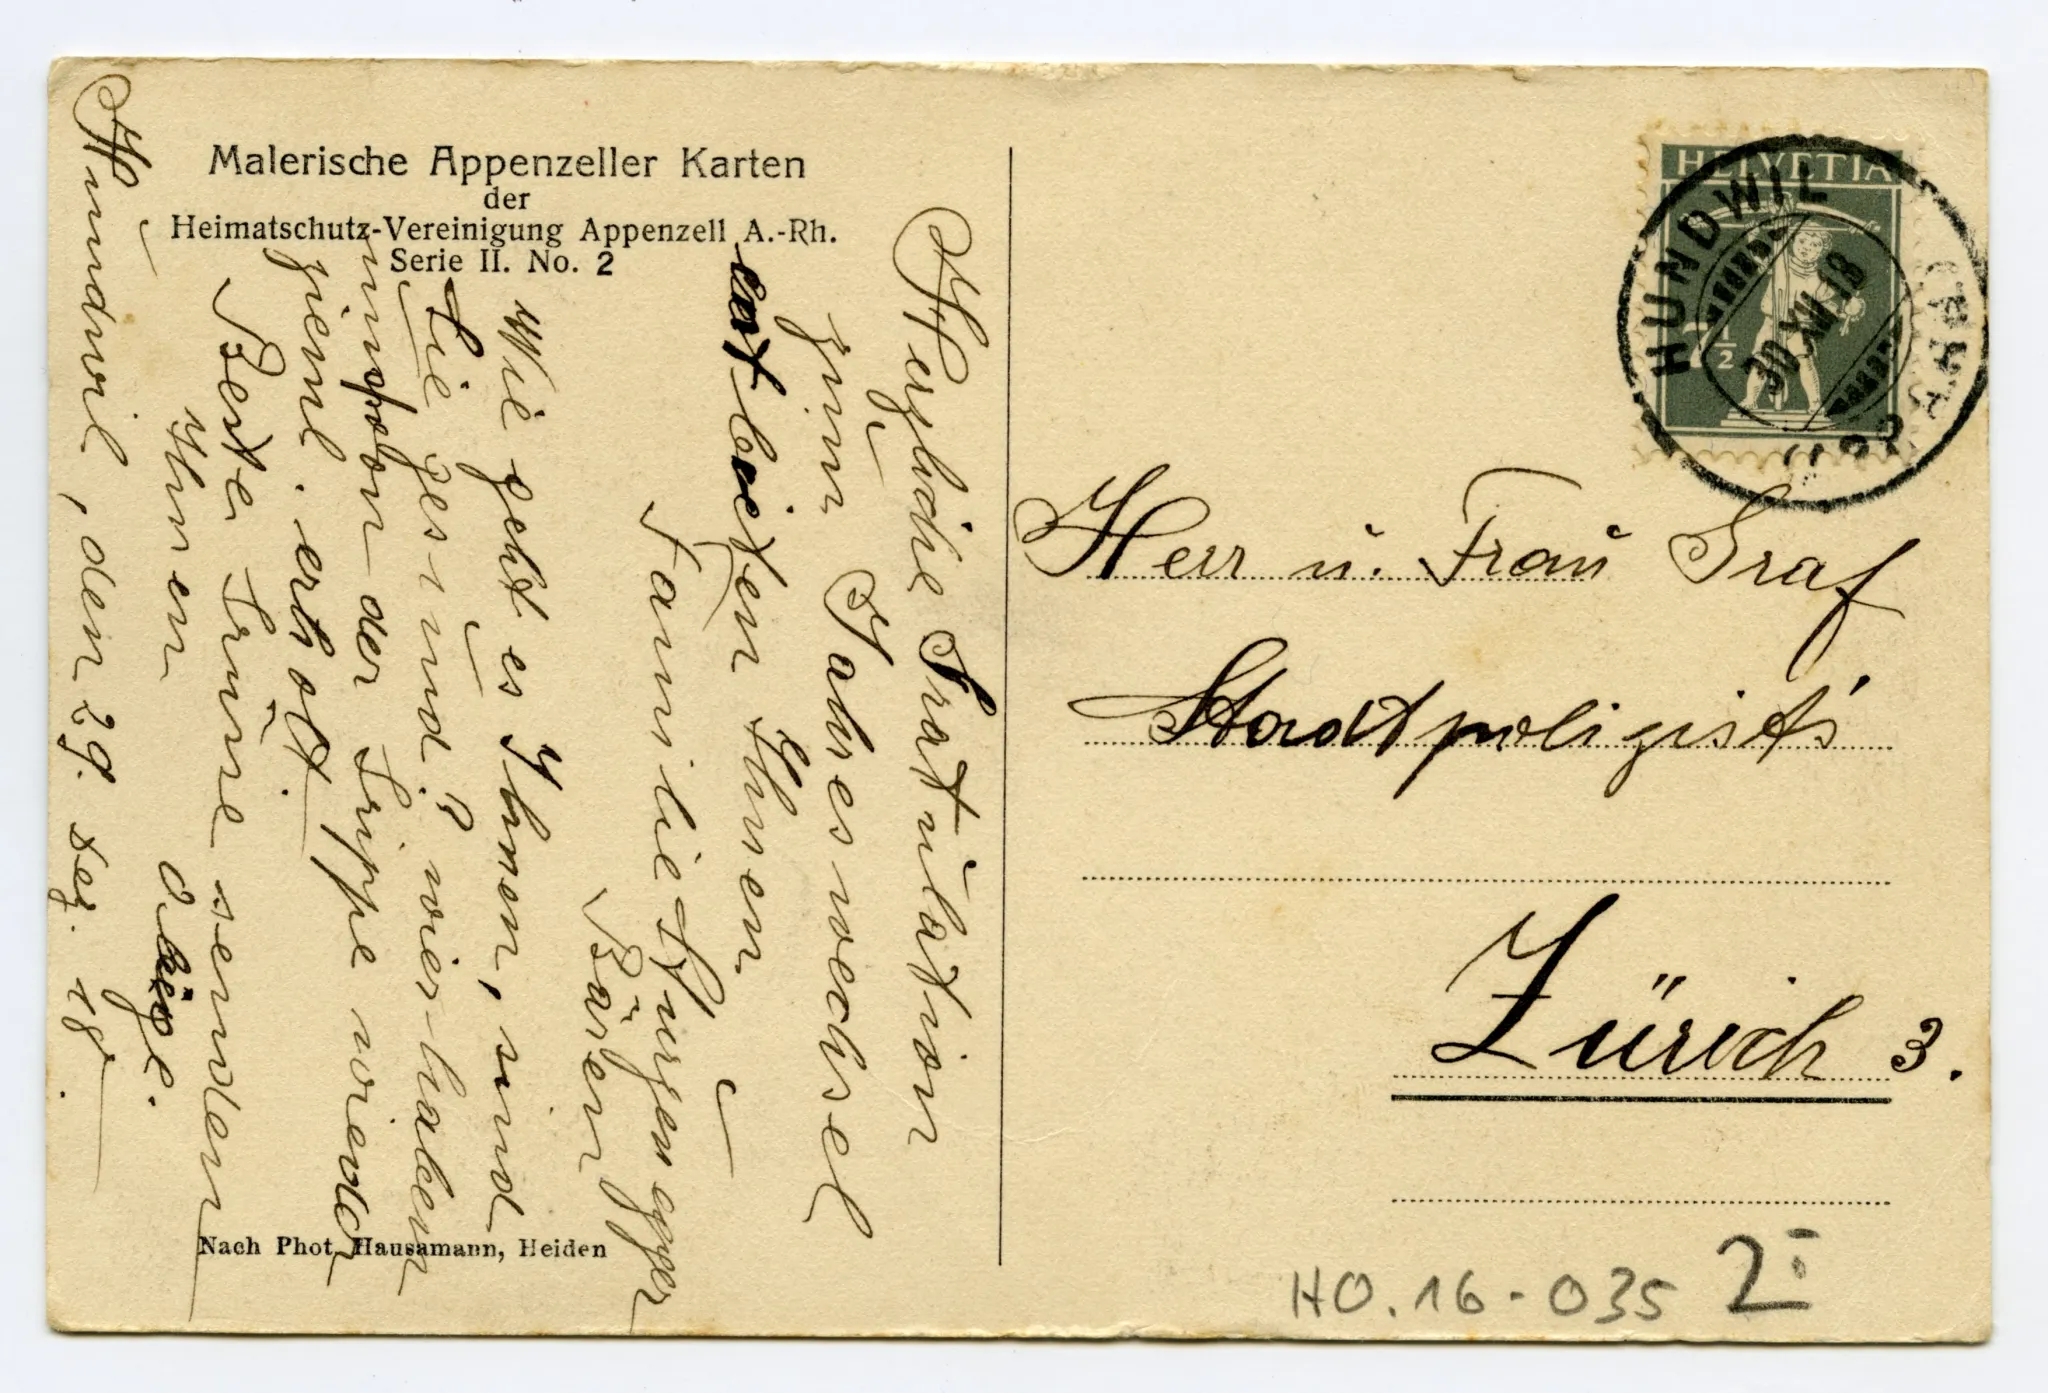 Malerische Appenzeller Karten
der
Heimatschutz-Vereinigung Appenzell A.-Rh.
Serie II. No. 2
Herzliche Gratulation
zum Jahreswechsel
entbeiten Ihnen
Familie Hugentobler
Bären
Wie geht es Ihnen, sind
Sie gesund? wier haben
uns von der Grippe wieder
zieml. erholt.
Beste Grüsse senden
Ihnen
obige.
Hundwil, den 29. Dez. 18.
Nach Phot. Hausamann, Heiden
HELVETIA
7 1/2
HUNDWIL
30.XII.18
Herr u. Frau Graf
Stadtpolizist's
Zürich 3.
HO.16-035 2